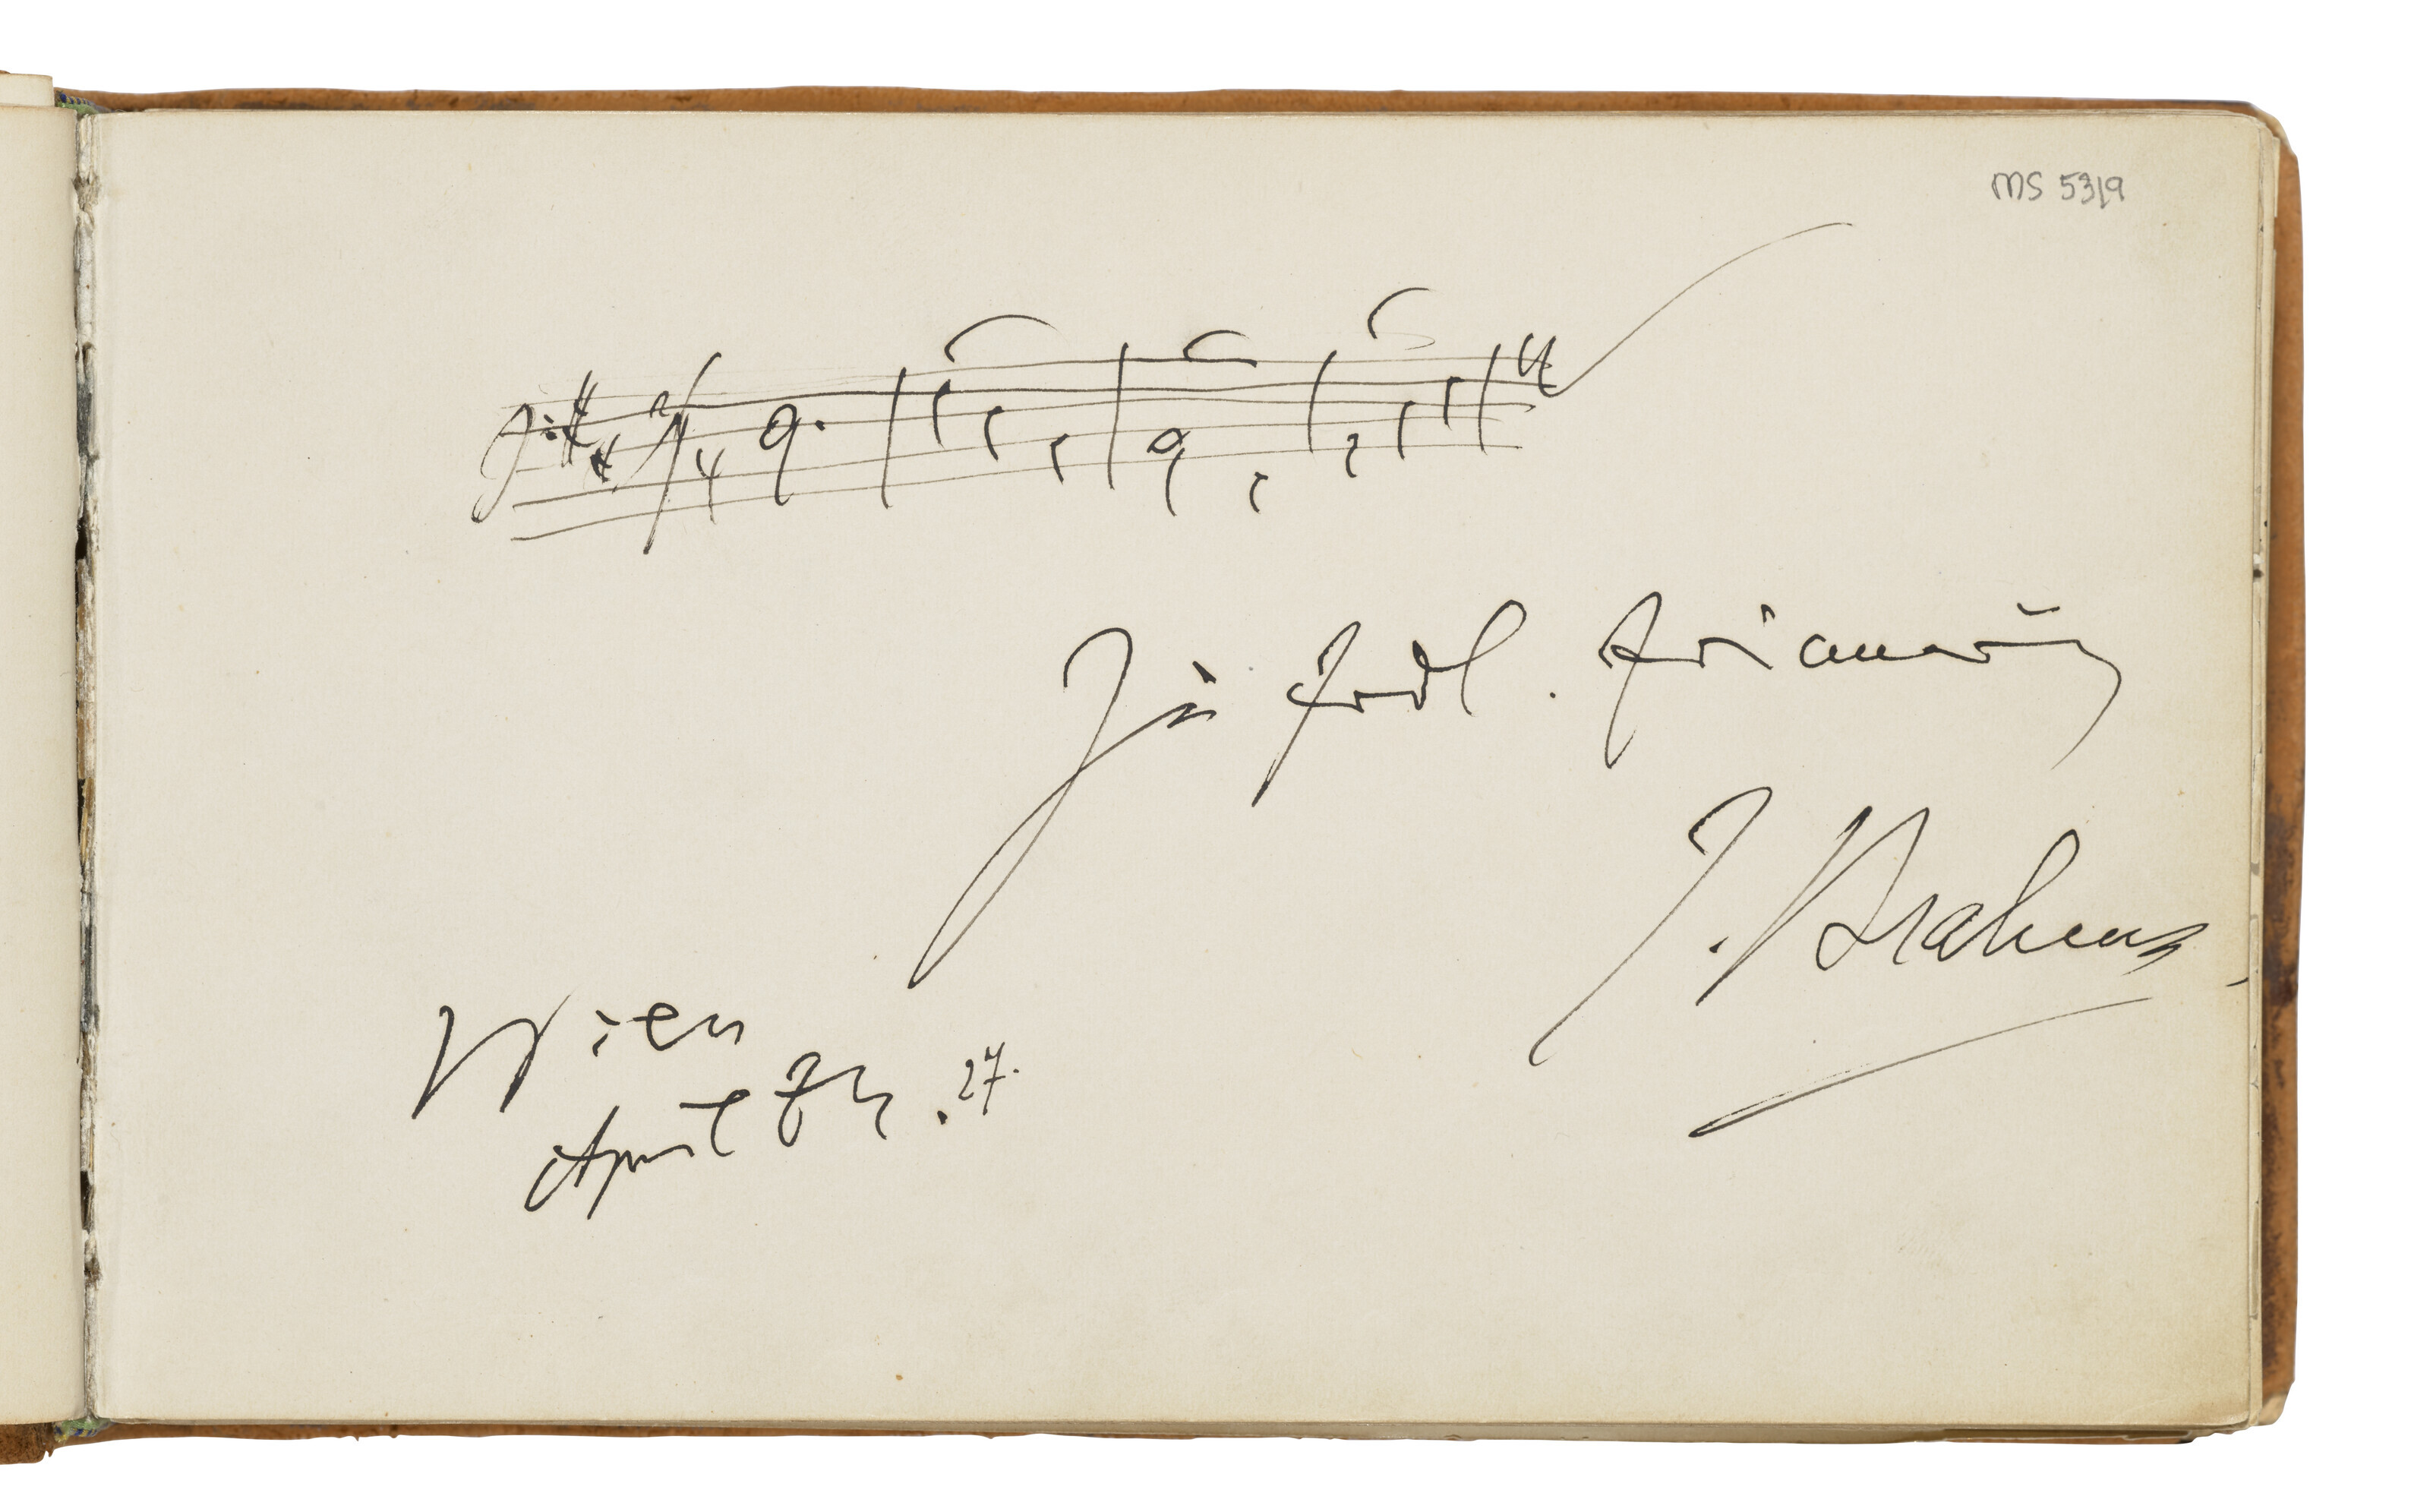 MS 5319
Zu frdl. Erinnerung
J. Brahms
Wien
April 27.